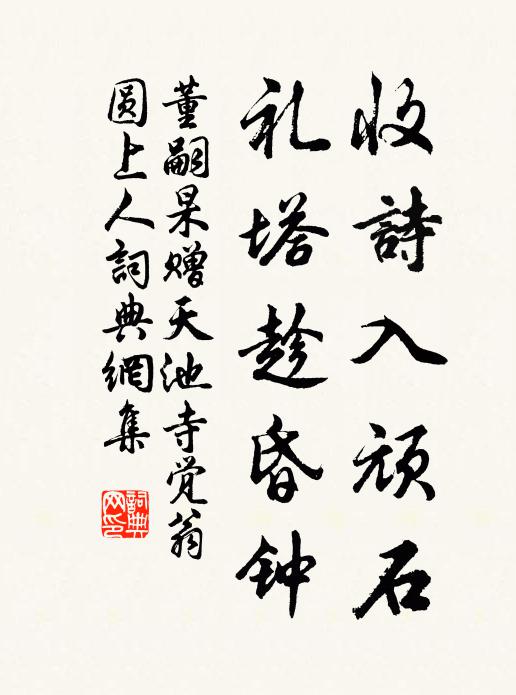 收詩入頑石
礼塔趁昏钟
董嗣杲赠天池寺觉翁
圆上人詞典網集
詞典网印